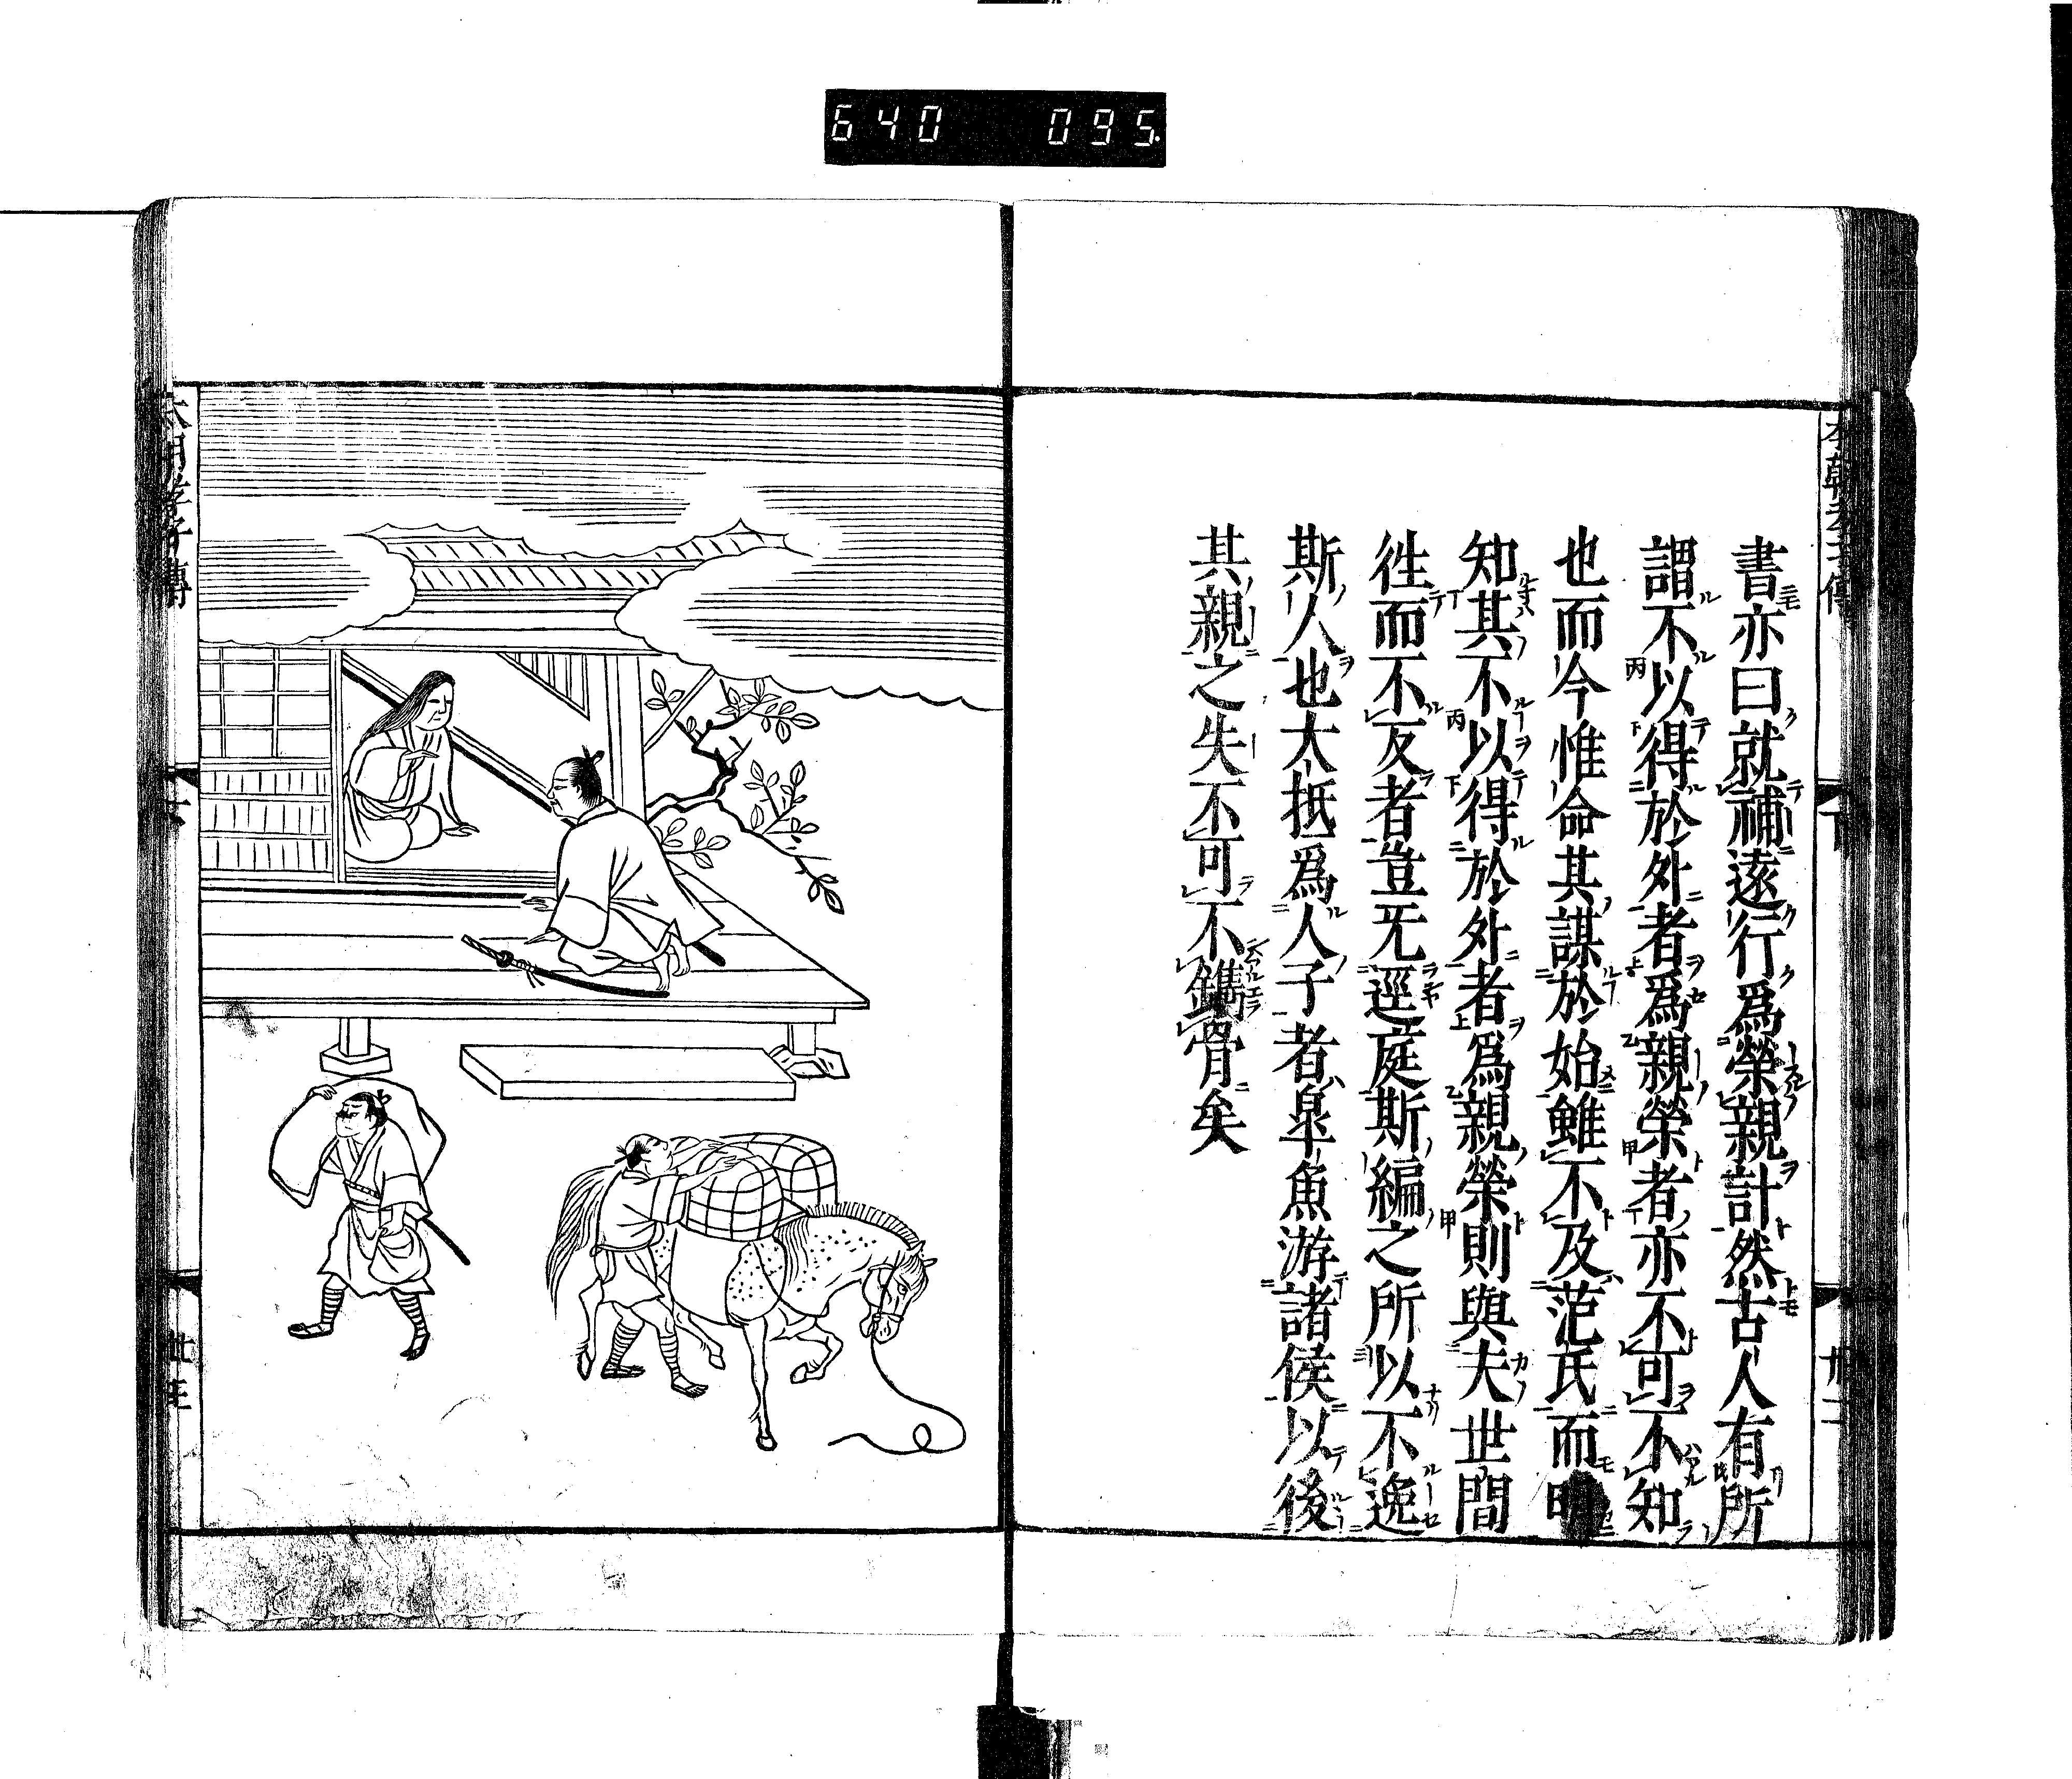 640 095
本朝孝子傳
下
卅二
書亦曰就補遠行爲榮親計然古人有所
謂不以得於外者爲親榮者亦不可不知
也而今惟命其謀於始雖不及范氏而明
知其不以得於外者爲親榮則與夫世間
徃而不反者豈无逕庭斯編之所以不逸
斯人也大抵爲人子者皐魚游諸侯以後
其親之失不可不鐫骨矣
本朝孝子傳